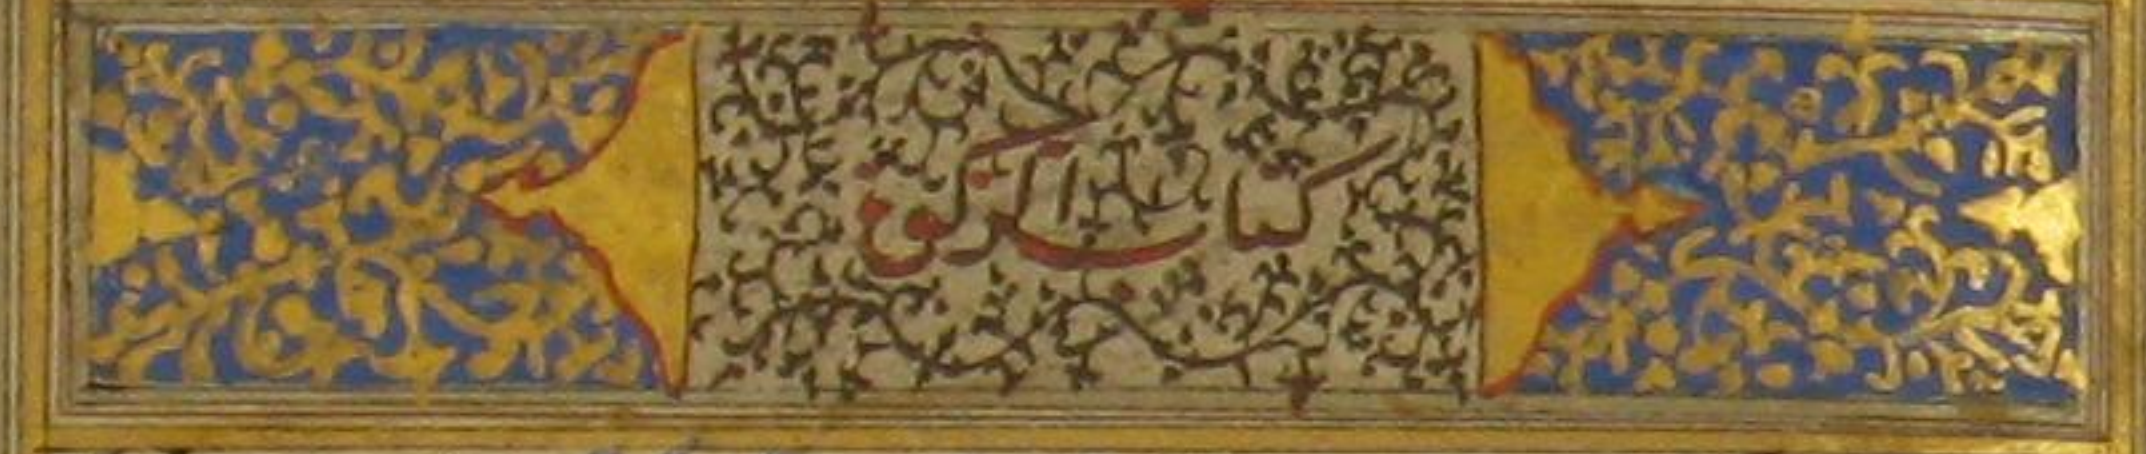 كتاب الزكوة